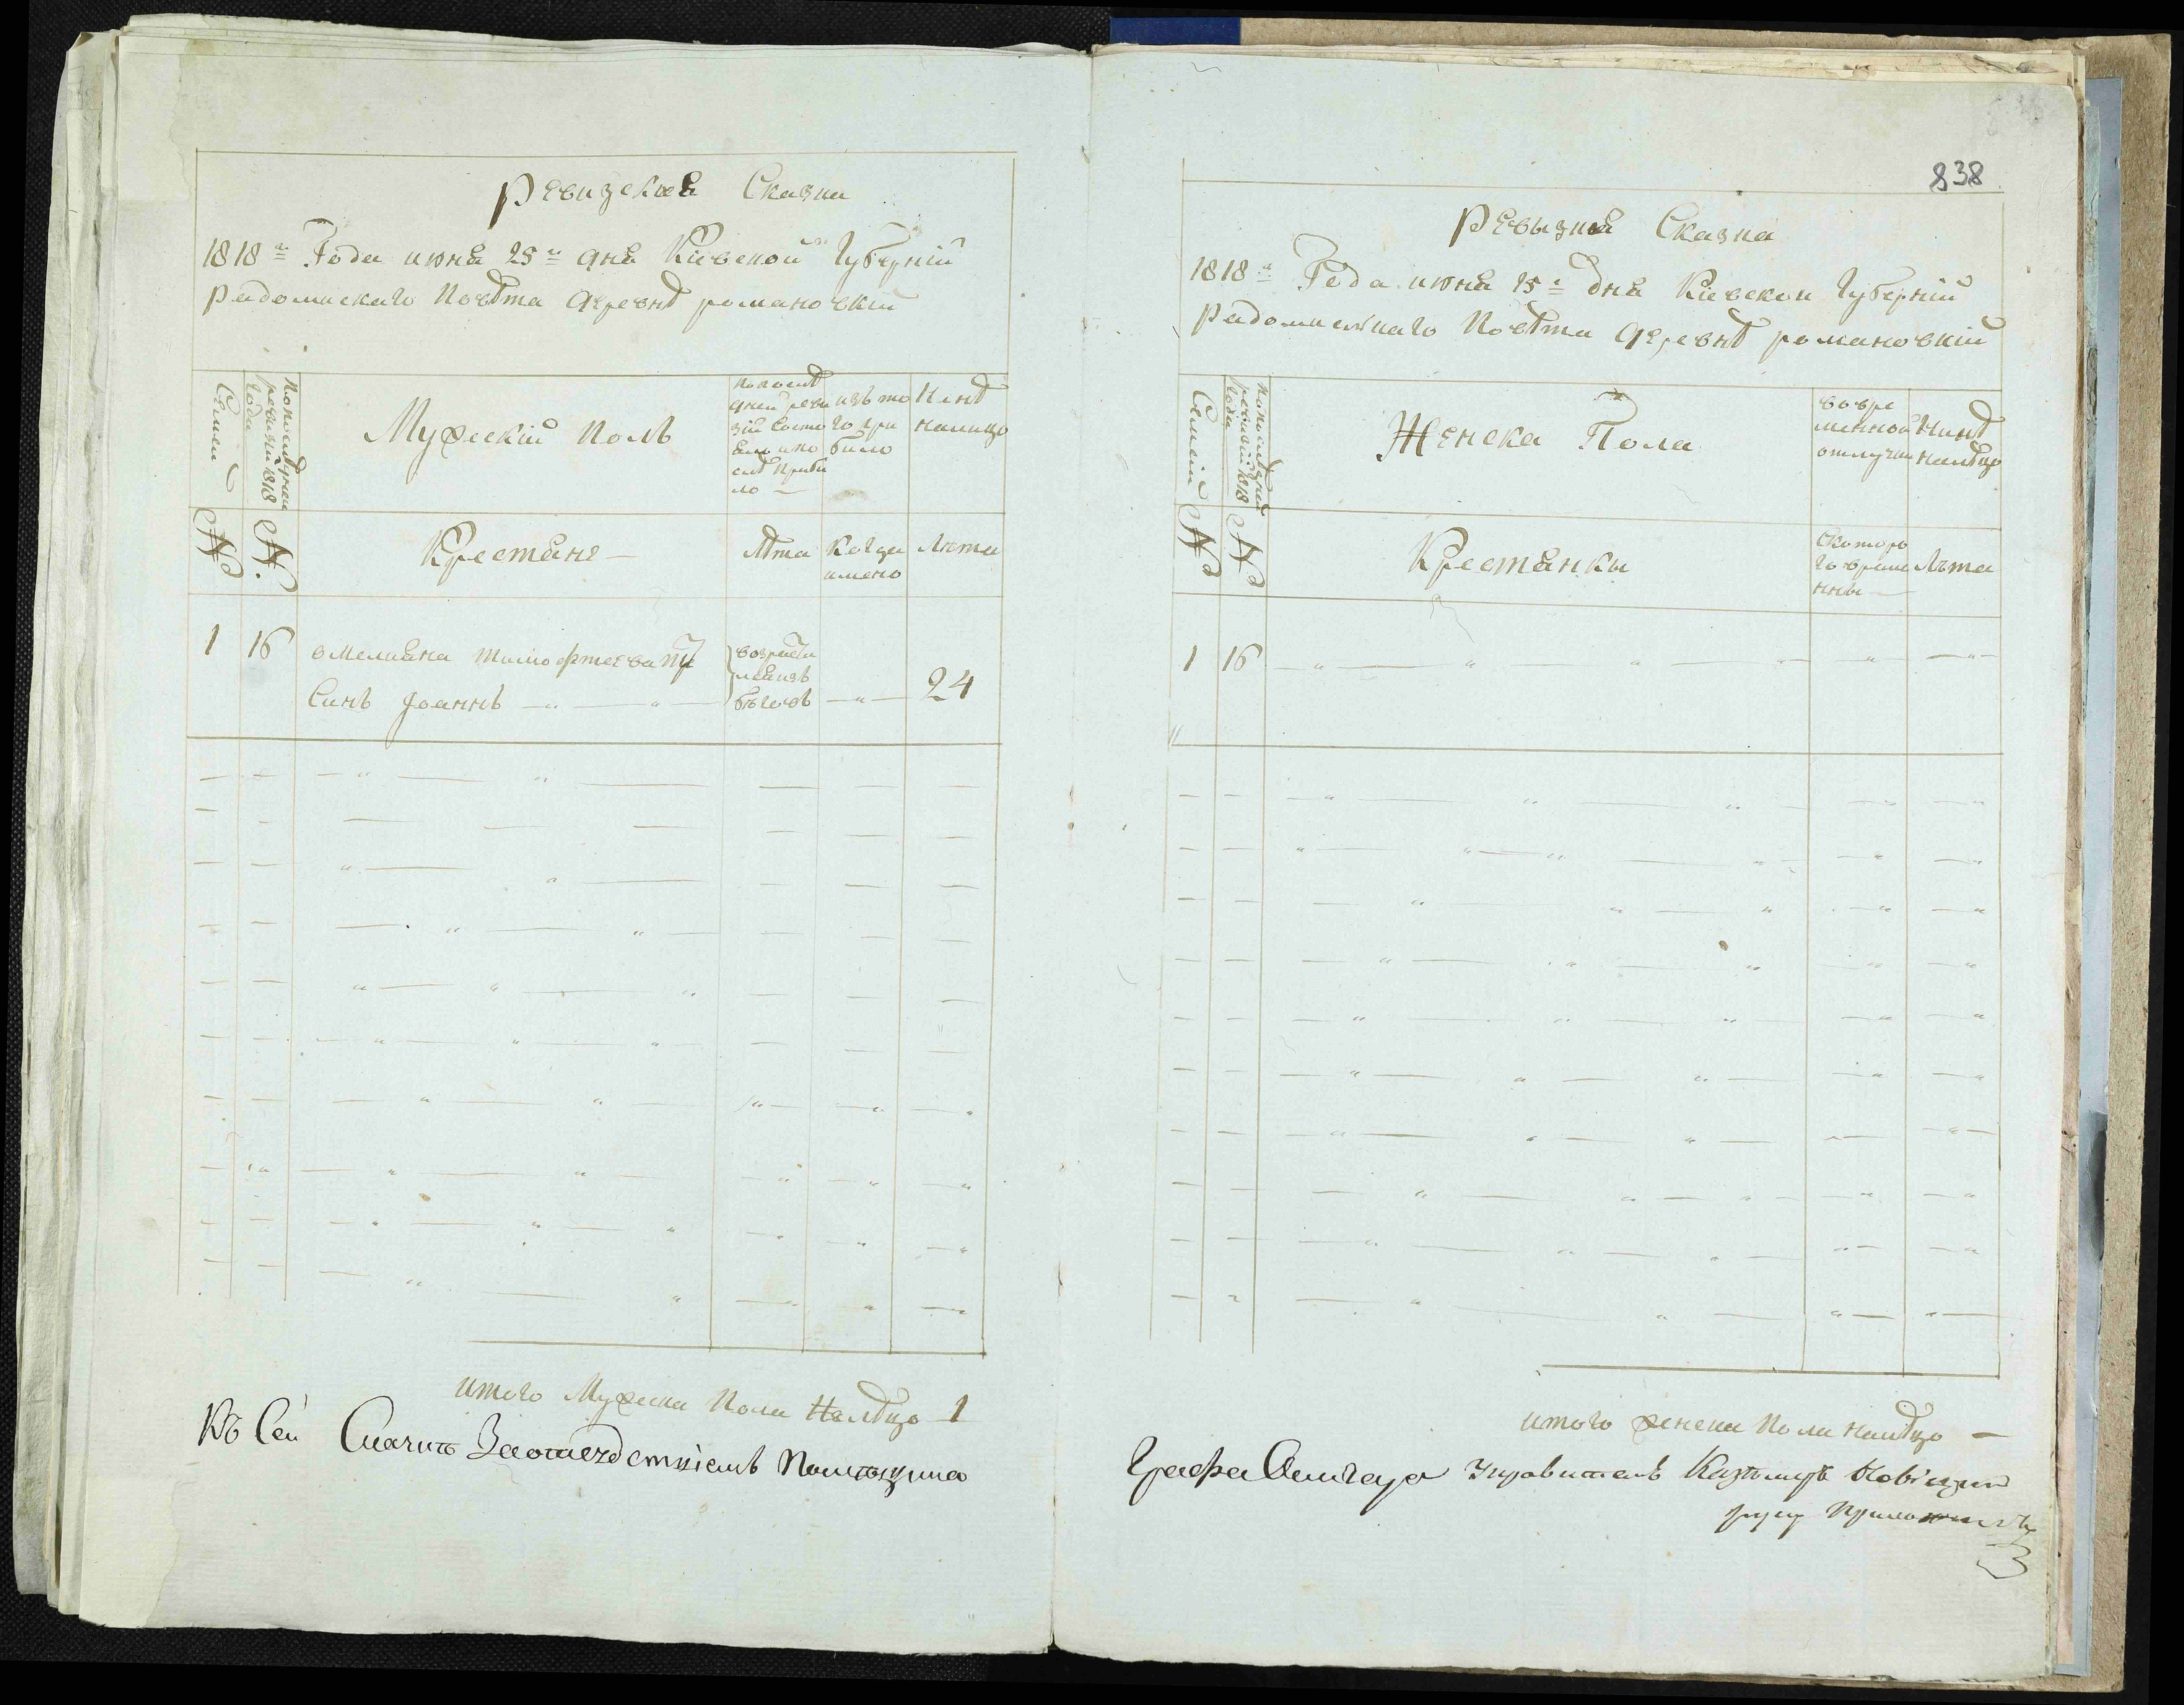 Ревизская Сказка
1818го Года июня 25го дня Киевской Губерніи
радомыскаго Повѣта деревнѣ романовкій
Семей
По последней ревизій 1818 Года
Мужескій Полъ
По последней ревизій состояло и после прибыло —
изъ того прибыло
Нинѣ налицо
№
№.
Крестяне —
Лѣта
Когда имено
Лѣта
1 16 омеляна тимофтеева
Синъ Јоаннъ
бѣговъ
24
итого Мужеска Пола Налѣцо 1
Къ Сей Сказкѣ
838
Ревызкая Сказка
1818го Года июня 25го дня Киевской Губерніи
радомыслкаго Повѣта деревнѣ романовкій
Семей
По последней ревизій 1818 Года
Женска Пола
во временной отлучки
Нинѣ налѣцо
№
№
Крестянки
Скоторого времены —
Лѣта
1 16
итого женска пола налѣцо —
Графа
руку приложилъ